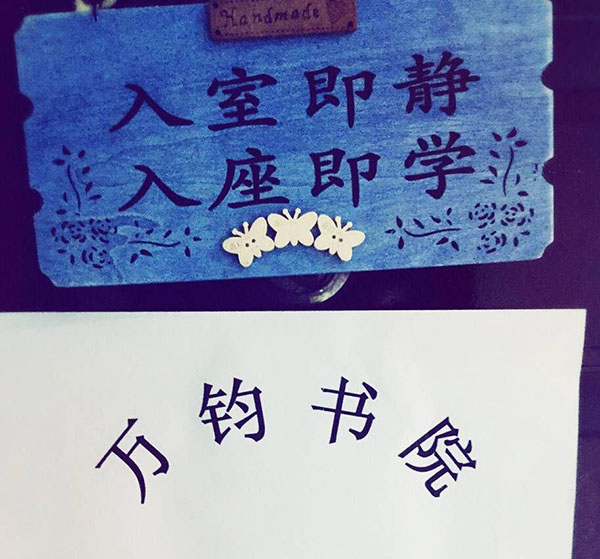 Handmade
入室即静
入座即学
万钧书院